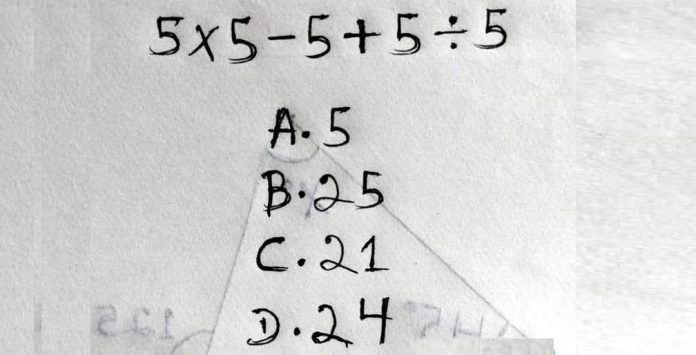 5×5-5+5÷5
A. 5
B. 25
C. 21
D. 24